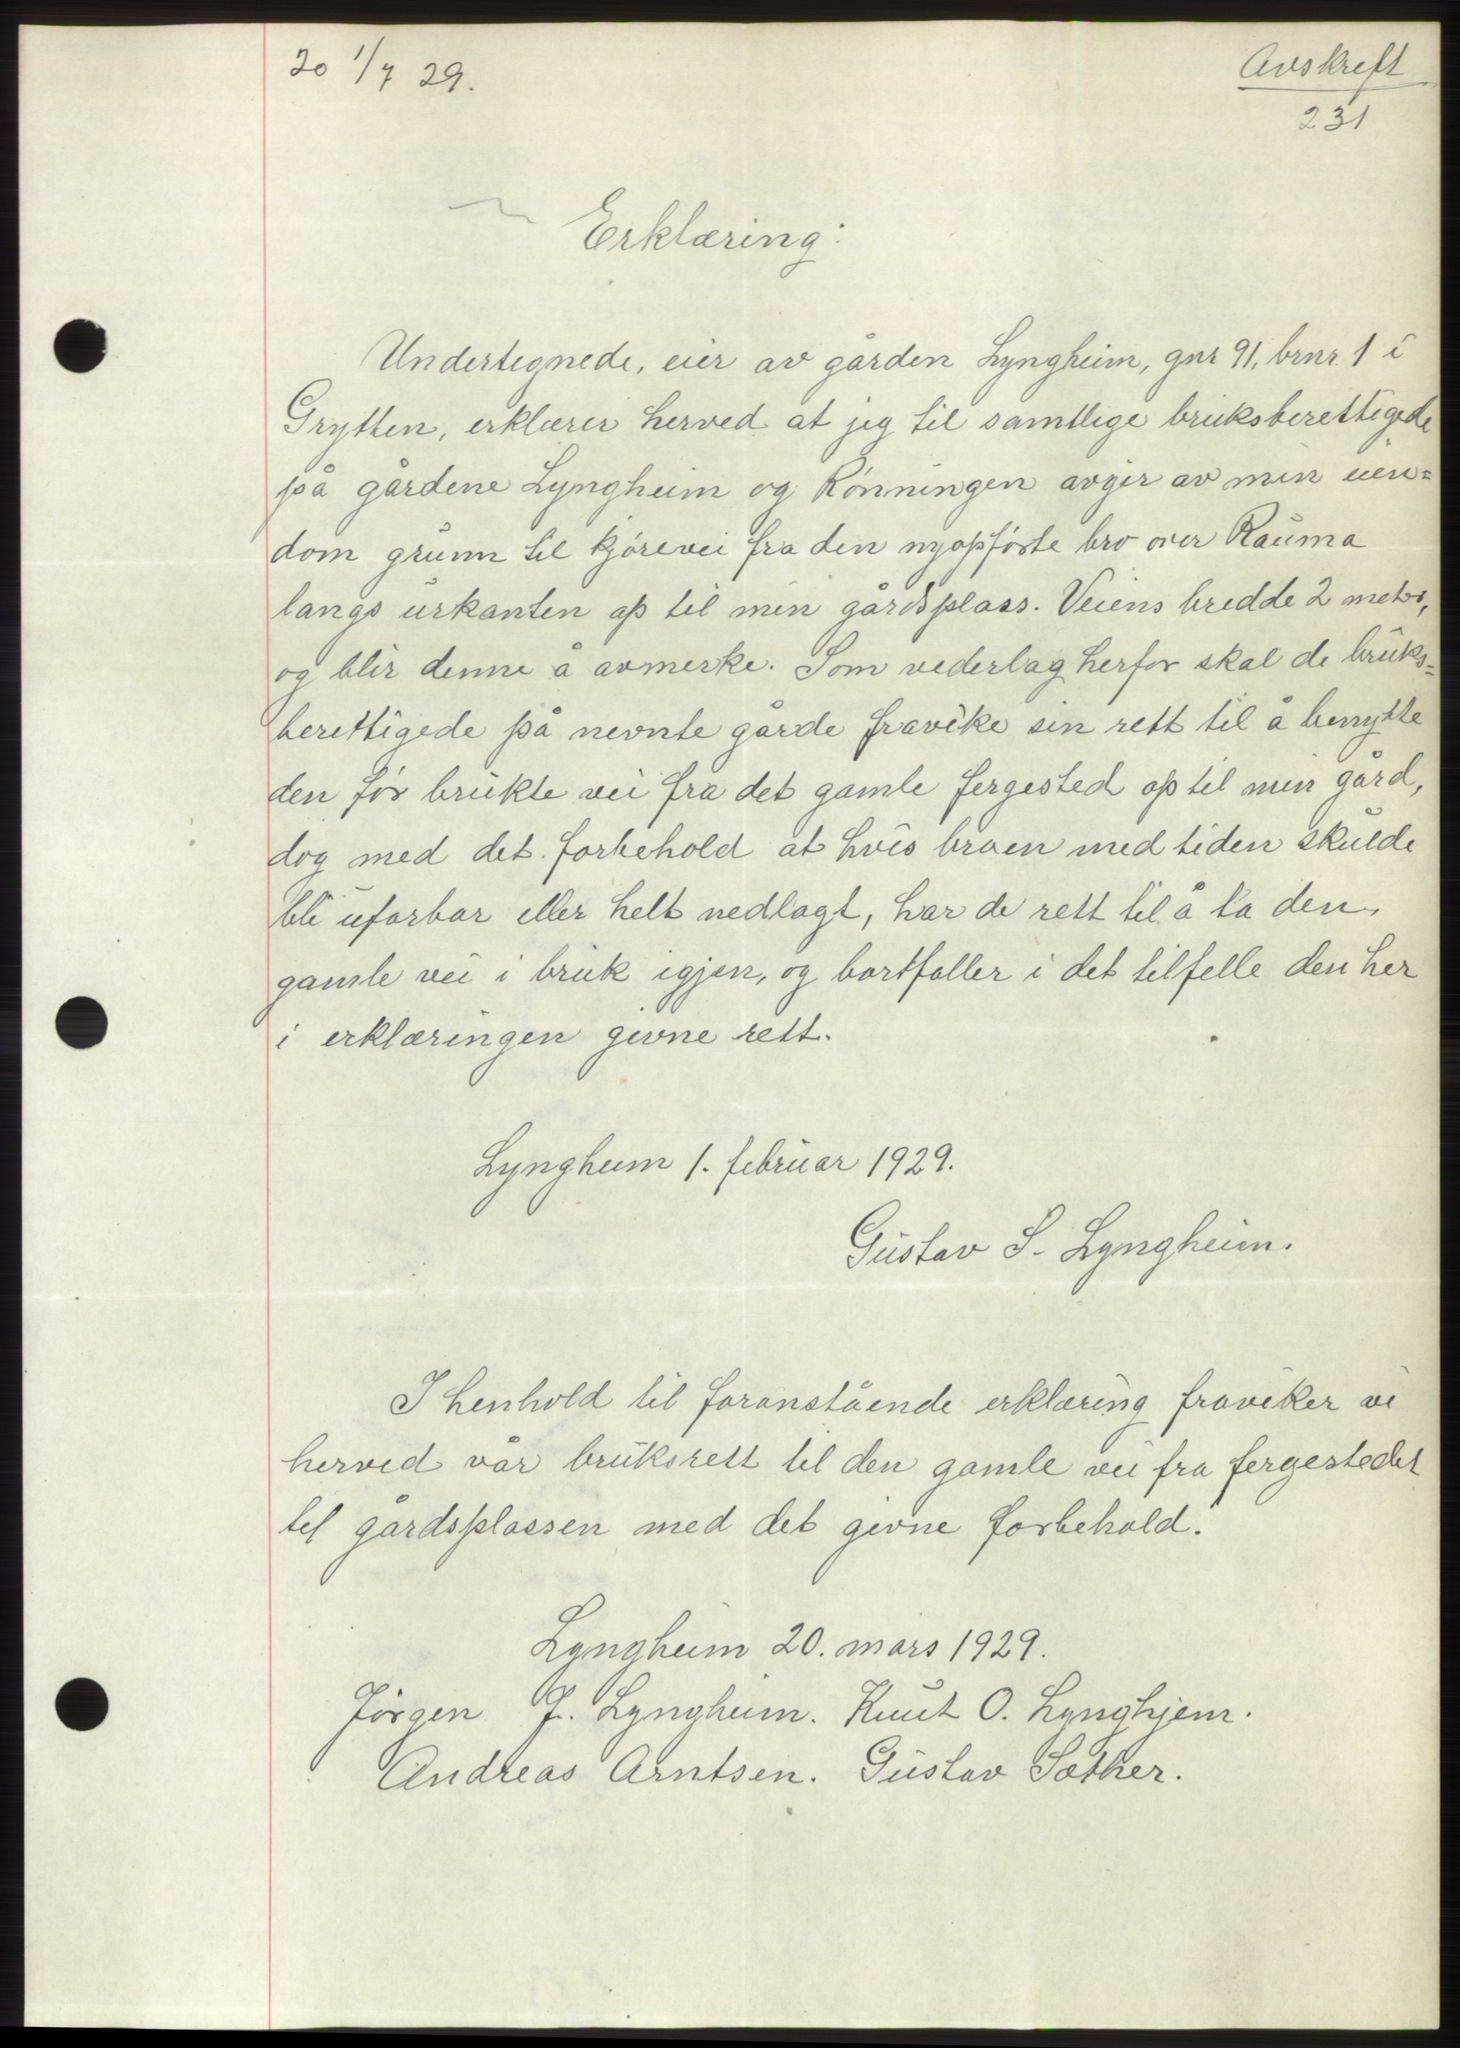 20 1/7 29.
Avskrift
231
Erklæring:
Undertegnede, eier av gården Lyngheim, gnr 91, brnr. 1 i
Grytten, erklærer herved at jeg til samtlige bruksberettigede
på gårdene Lyngheim og Rønningen avgir av min eien=
dom grunn til kjørevei fra den nyopførte bro over Rauma
langs urkanten op til min gårdsplass. Veiens bredde 2 meter,
og blir denne å avmerke. Som vederlag herfor skal de bruks=
berettigede på nevnte gårde fravike sin rett til å benytte
den før brukte vei fra det gamle fergested op til min gård,
dog med det forbehold at hvis broen med tiden skulde
bli ufarbar eller helt nedlagt, har de rett til å ta den
gamle vei i bruk igjen, og bortfaller i det tilfelle den her
i erklæringen givne rett.
Lyngheim 1. februar 1929.
Gustav S. Lyngheim.
I henhold til foranstående erklæring fraviker vi
herved vår bruksrett til den gamle vei fra fergestedet
til gårdsplassen med det givne forbehold.
Lyngheim 20. mars 1929.
Jørgen J. Lyngheim. Knut O. Lynghjem.
Andreas Arntsen. Gustav Sæther.